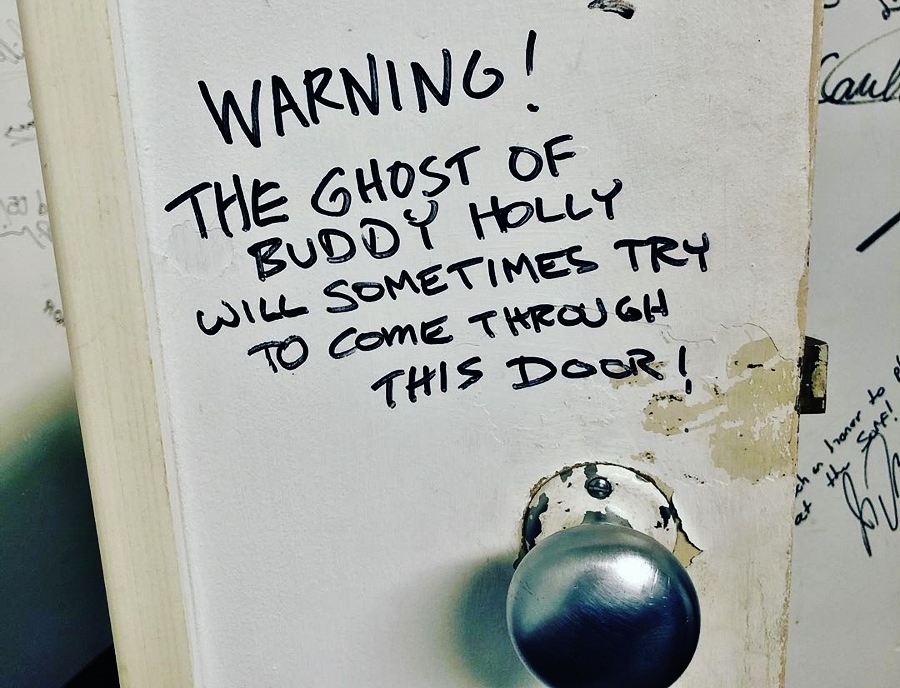 WARNING!
THE GHOST OF
BUDDY HOLLY
WILL SOMETIMES TRY
TO COME THROUGH
THIS DOOR!
honor to
at the Surf!